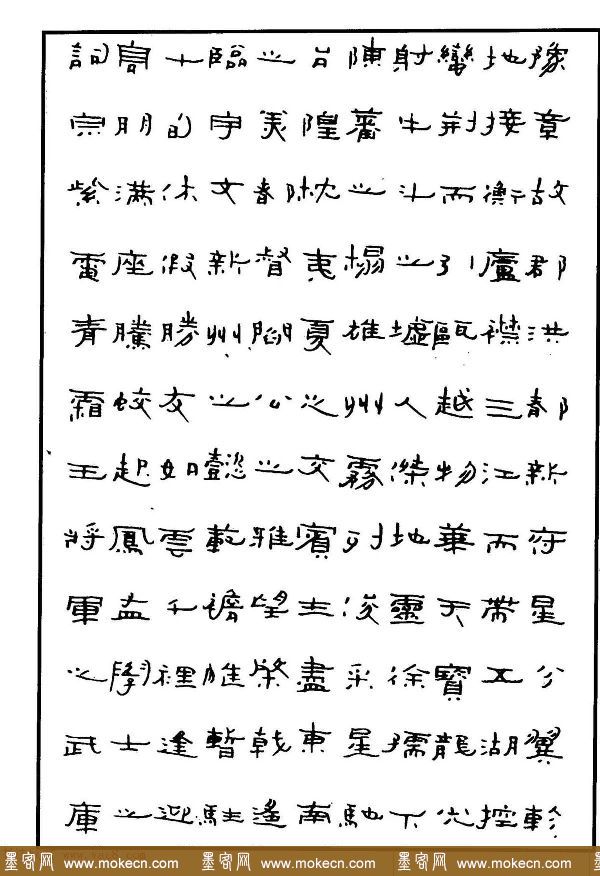 豫章故郡洪都新府星分翼軫
地接衡廬襟三江而帶五湖控
蠻荊而引甌越物華天寶龍光
射牛斗之墟人傑地靈徐孺下
陳蕃之榻雄州霧列俊采星馳
台隍枕夷夏之交賓主盡東南
之美都督閻公之雅望棨戟遙
臨宇文新州之懿範襜帷暫駐
十旬休假勝友如雲千裡逢迎
高朋滿座騰蛟起鳳孟學士之
詞宗紫電青霜王將軍之武庫
墨客网 www.mokecn.com 墨客网 www.mokecn.com 墨客网 www.mokecn.com